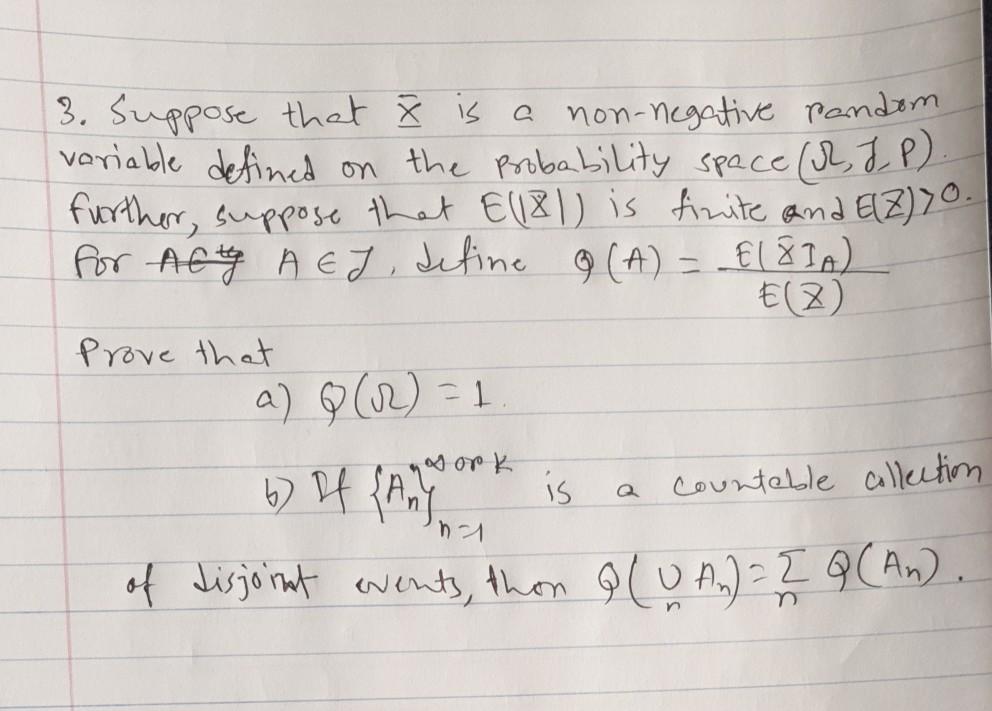 3. Suppose that X̄ is a non-negative random
variable defined on the probability space (Ω, F, P).
further, suppose that E(|X̄|) is finite and E(X̄)>0.
for A ∈ F, define Q(A) = E(X̄ I_A) / E(X̄)
Prove that
a) Q(Ω) = 1.
b) If {A_n}_{n=1}^{∞ or k} is a countable collection
of disjoint events, then Q(∪_n A_n) = Σ_n Q(A_n).